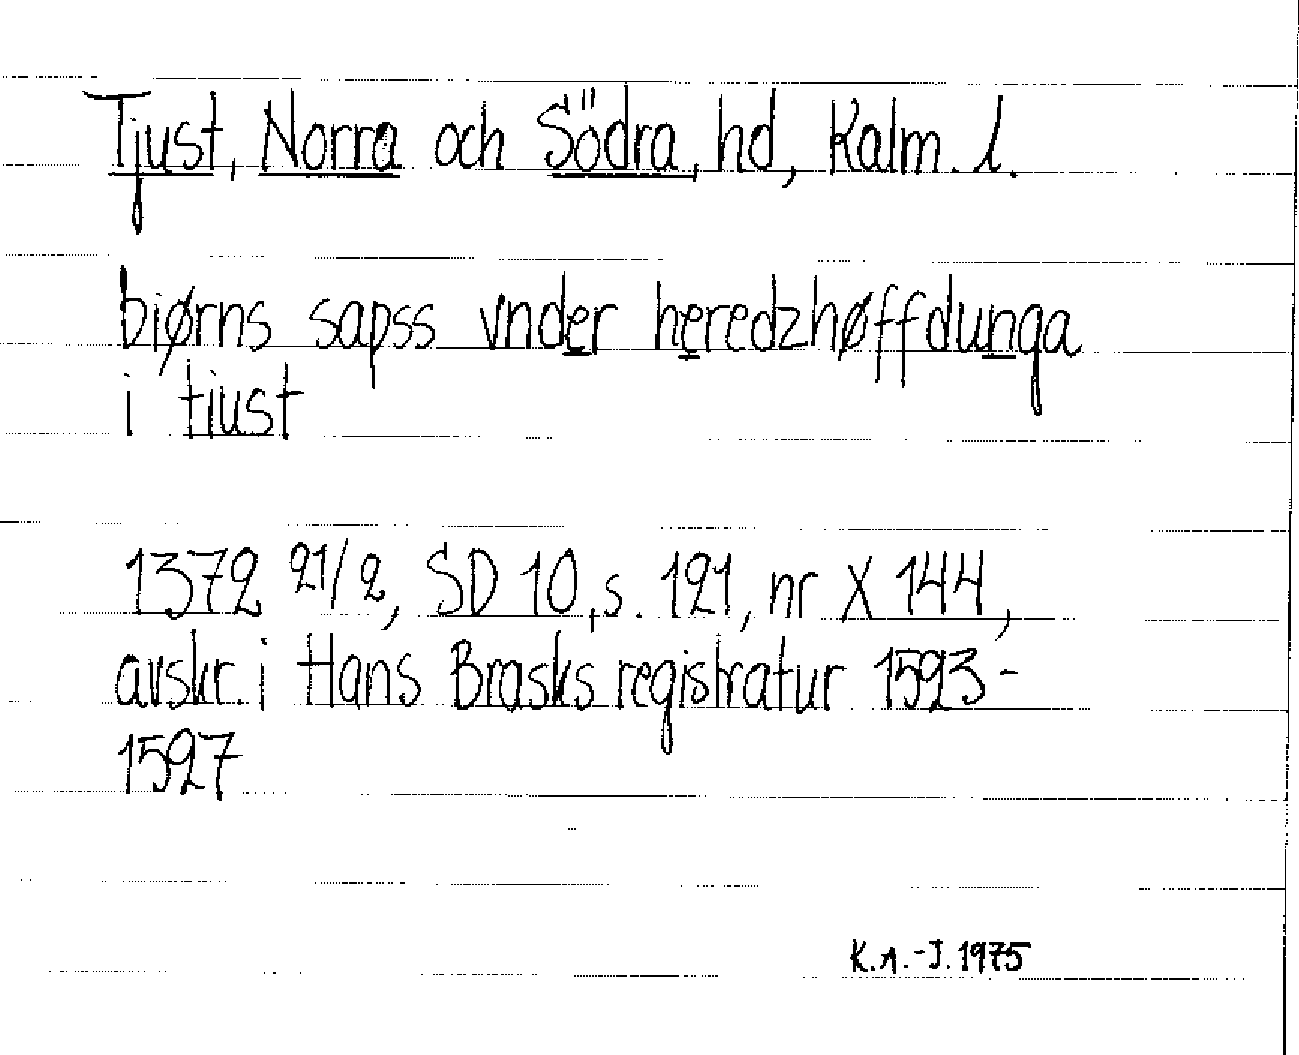 Tjust, Norra och Södra, hd, Kalm. l.
biørns sapss vnder heredzhøffdunga
i tiust
1372 21/2, SD 10, s. 121, nr X 144,
avskr. i Hans Brasks registratur 1523-
1527
K.A.-J. 1975